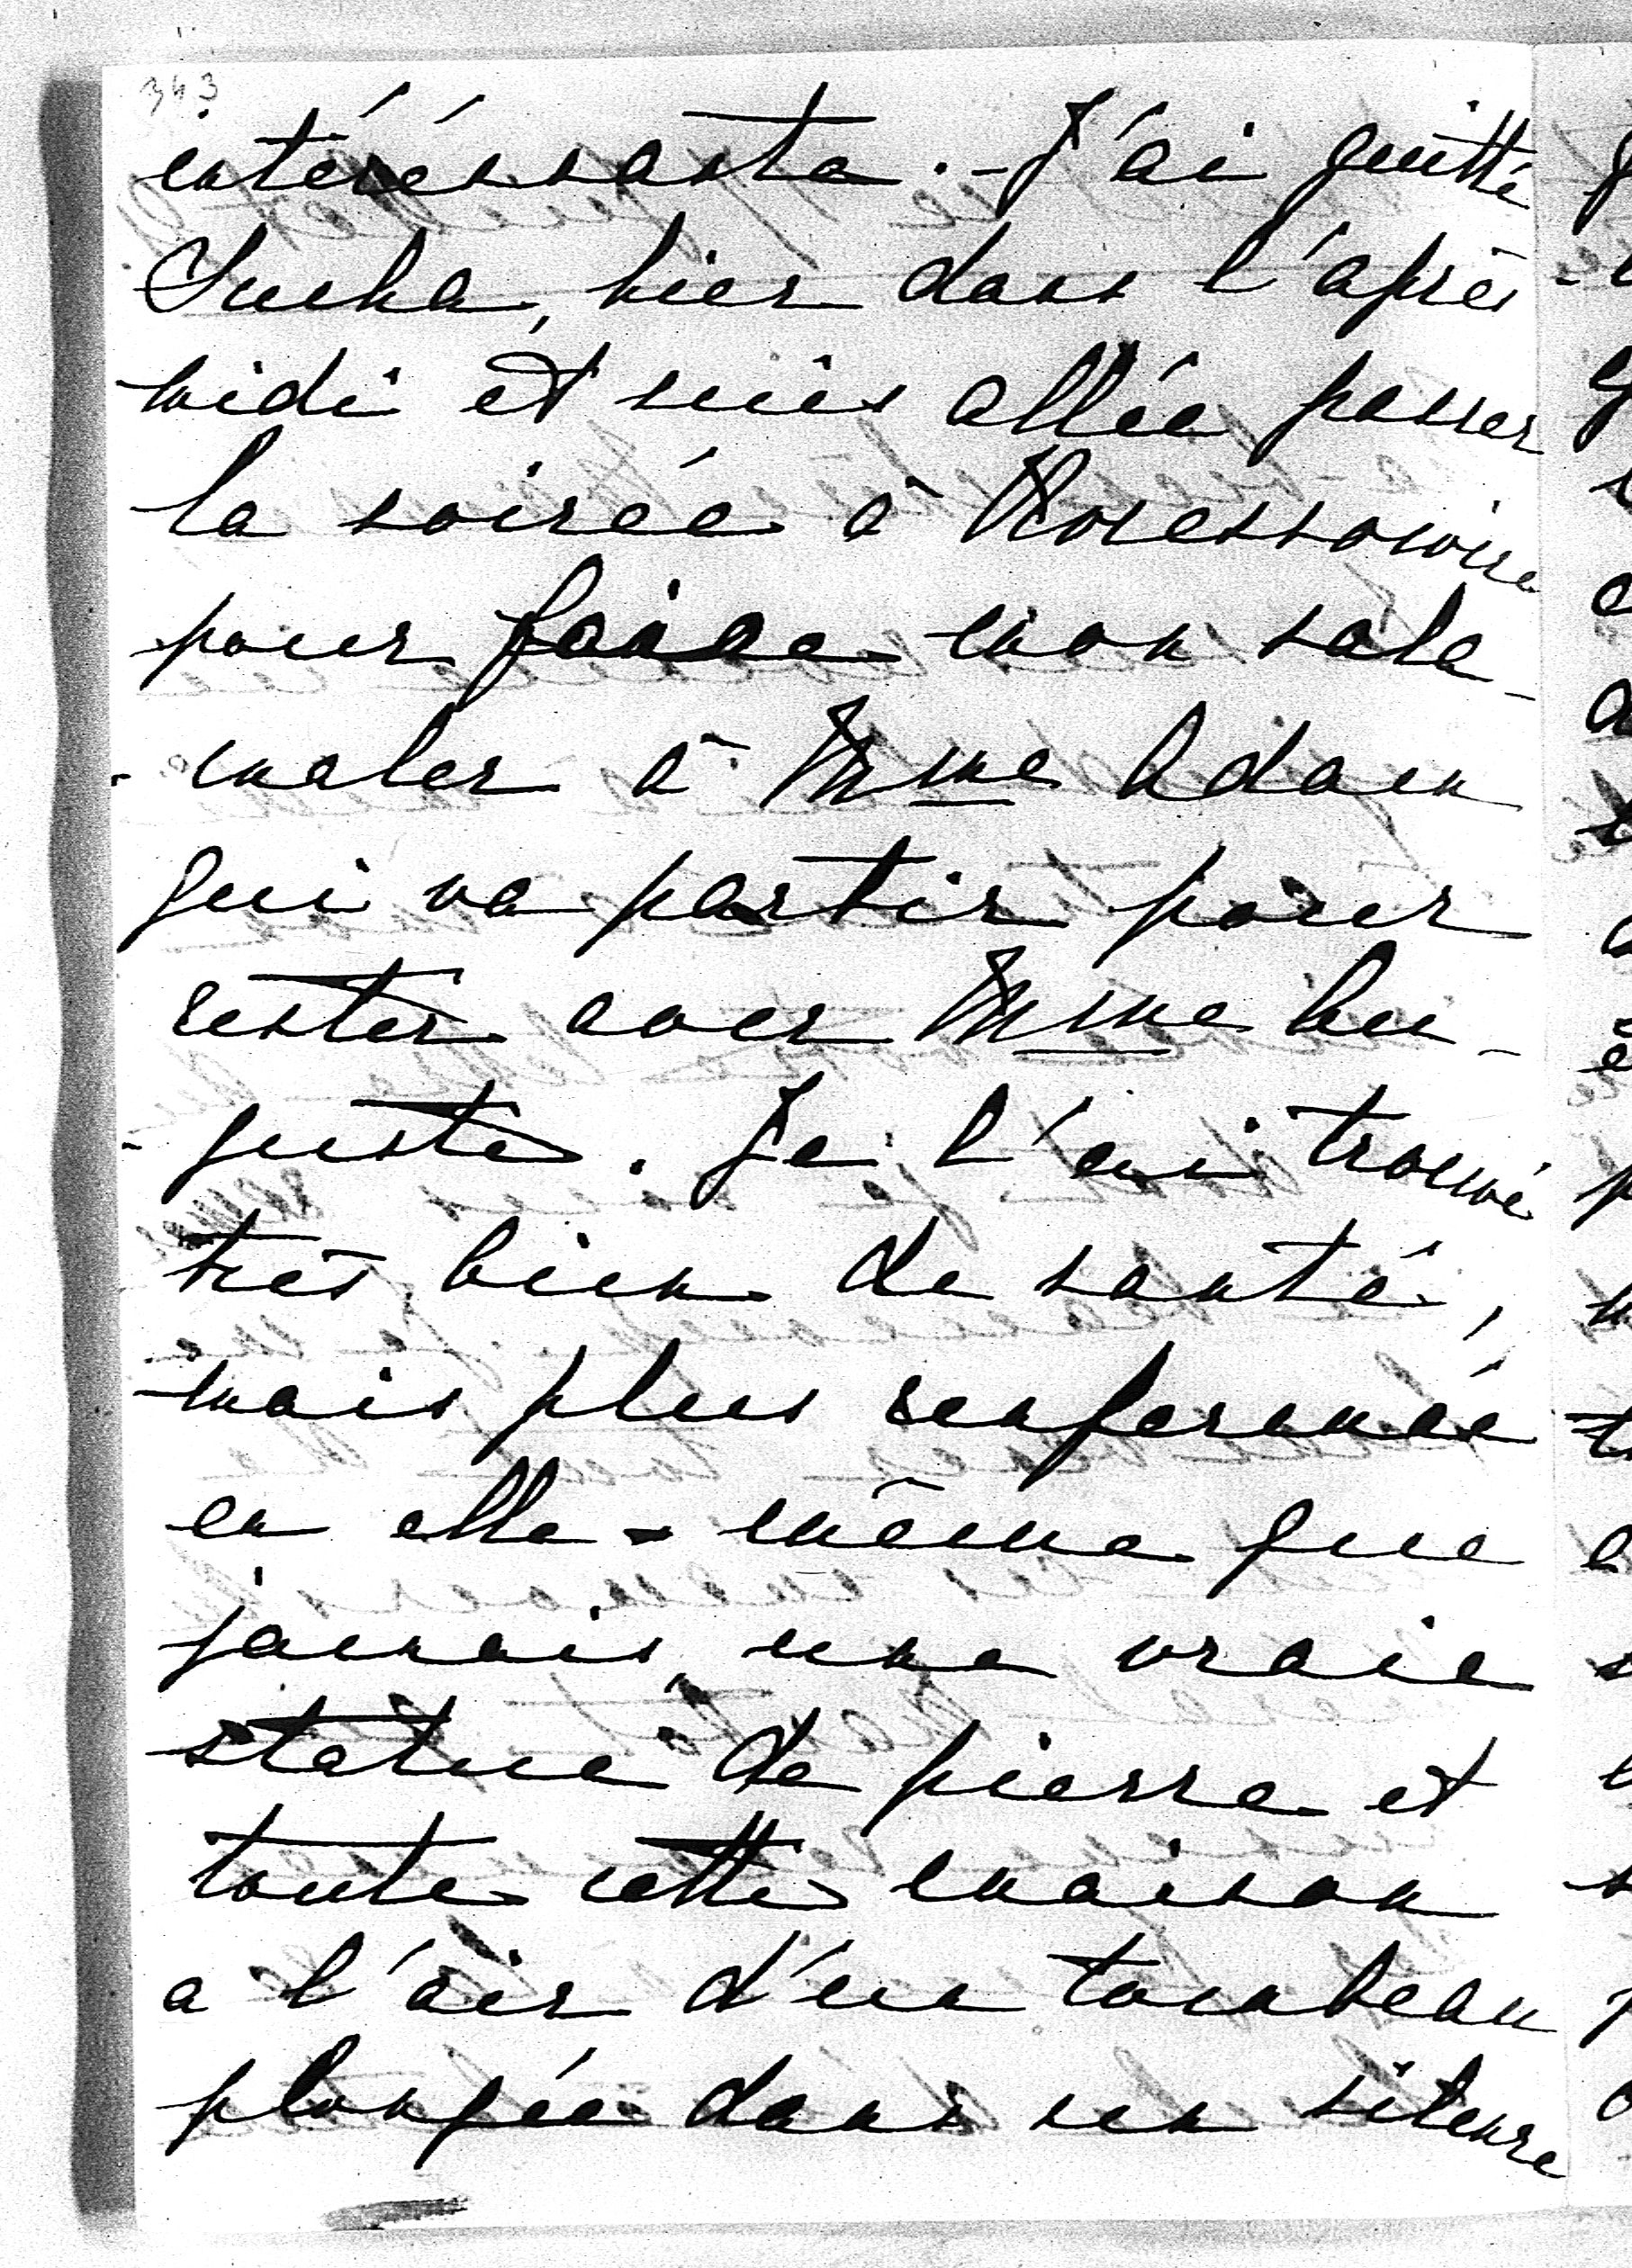 343
intéréssante. - J'ai quitté
Sucha, hier dans l'après-
midi et suis allée passer
la soirée à
pour faire mon sala-
- maler à Mme Adam
qui va partir pour
rester avec Mme Au-
- guste. Je l'ai trouvé
très bien de santé,
mais plus renfermée
en elle-même que
jamais, une vraie
statue de pierre et
toute cette maison
a l'air d'un tombeau
plongée dans un silence